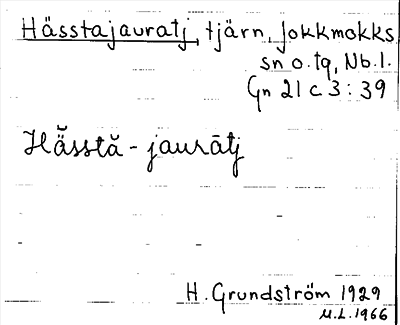 Hässtajauratj, tjärn, Jokkmokks
sn o. tg, Nb. l.
Gn 21 c 3 : 39
Hä̆sstă - jaurātj
H. Grundström 1929
M.L. 1966